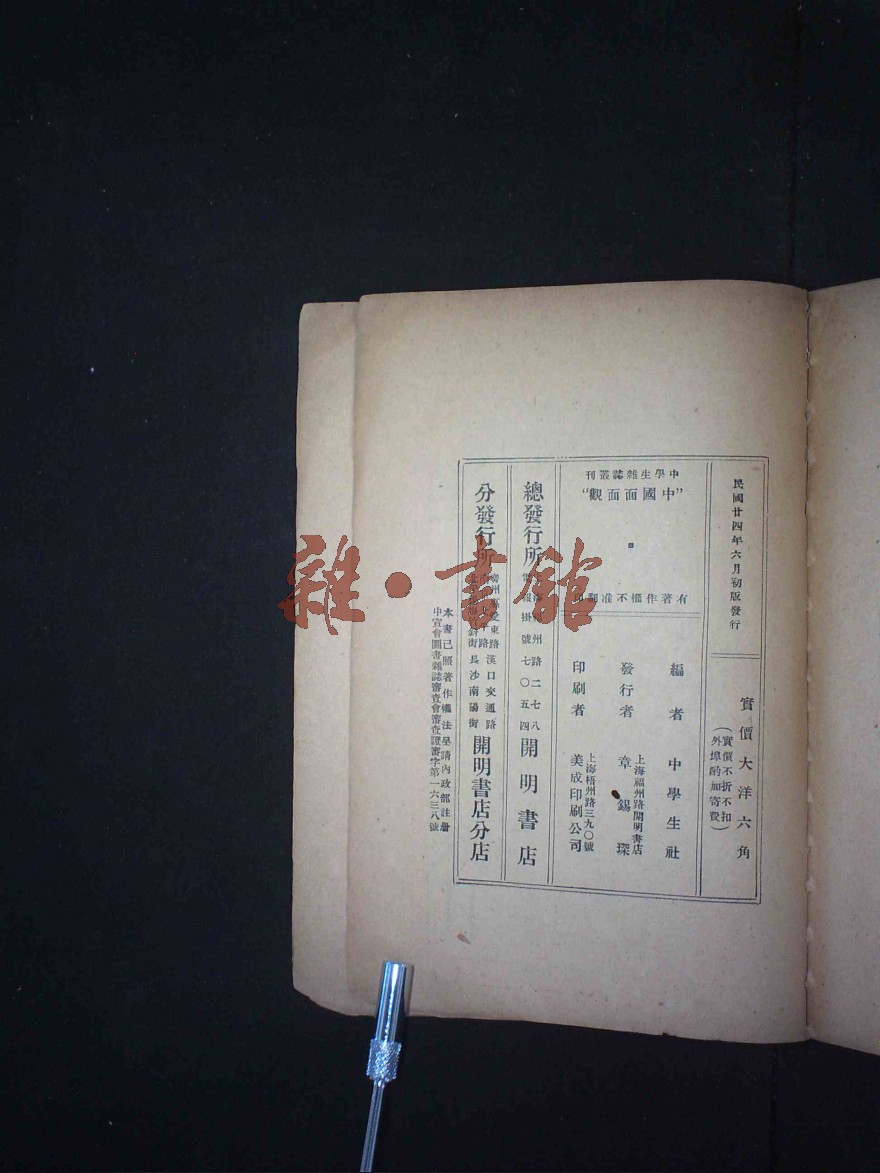 民國廿四年六月初版發行
實價大洋六角
(實價不折不扣
外埠酌加寄費)
中學生雜誌叢刊
"中國面面觀"
有著作權不准翻印
編者 中學生社
發行者 上海福州路開明書店
章錫琛
印刷者 上海梧州路三九〇號
美成印刷公司
總發行所 福州路二七八
報掛號七〇五四
開明書店
分發行所 廣州惠愛東路 漢口交通路
路
街 長沙南陽街
開明書店分店
本書已照著作權法呈請內政部註冊
中宣會圖書雜誌審查會審查證審字第一六三八號
雜·書館